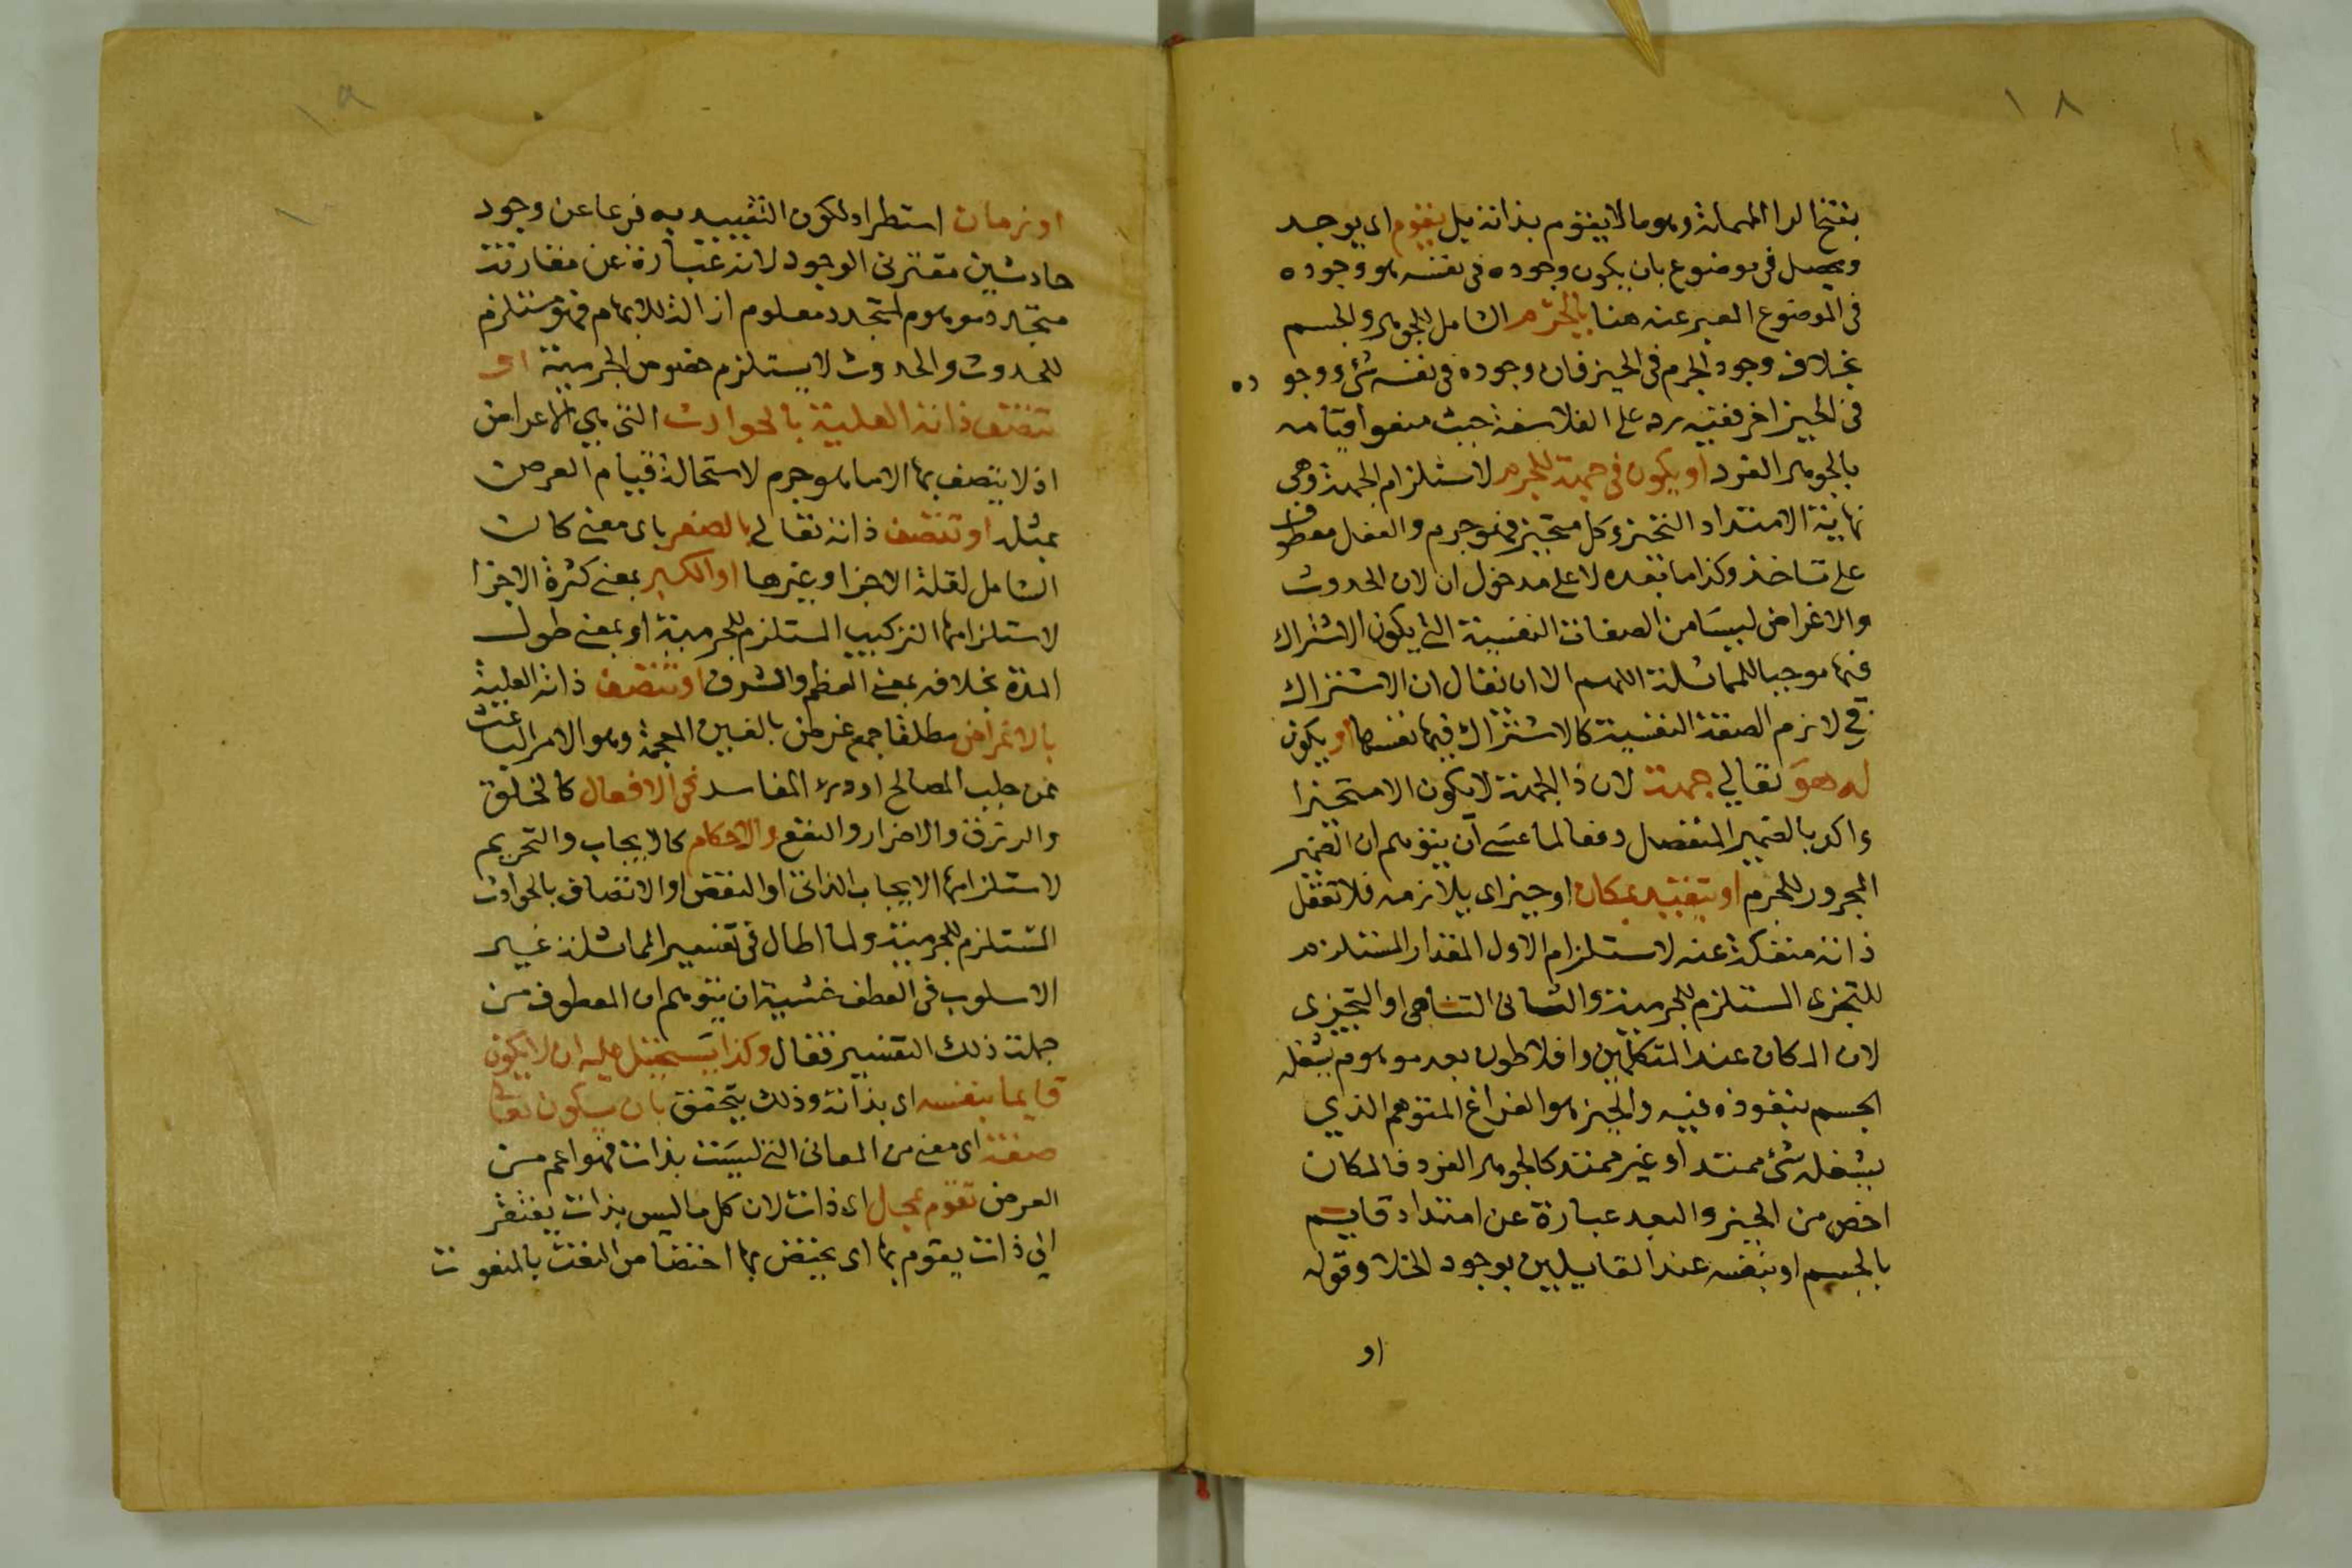 ١٨
بفتح الرا المهملة وهو ما لا يقوم بذاته بل يقوم اى يوجد
ويحصل فى موضوع بان يكون وجوده فى نفسه هو وجوده
فى الموضوع المعبر عنه هنا بالجرم الشامل للجوهر والجسم
بخلاف وجود الجرم فى الحيز فان وجوده فى نفسه شئ ووجوده
فى الحيز اخر ففيه رد على الفلاسفة حيث منعوا قيامه
بالجوهر الفرد او يكون فى جهة للجرم لاستلزام الجهة وهى
نهاية الامتداد التحيز وكل متحيز فهو جرم والفعل معطوف
على تاخذ وكذا ما بعده لا على مدخول ان لان الحدوث
والاغراض ليسا من الصفات النفسية التى يكون الاشتراك
فيها موجبا للمماثلة اللهم الا ان يقال ان الاشتراك
فى لازم الصفة النفسية كالاشتراك فيها نفسها او يكون
له هو تعالي جهة لان ذا الجهة لا يكون الا متحيزا
واكد بالضمير المنفصل دفعا لما عسى ان يتوهم ان الضمير
المجرور للجرم او يتقيد بمكان او حيز اى يلازمه فلا تعقل
ذاته منفكة عنه لاستلزام الاول المقدار المستلزم
للتجزى المستلزم للجرمية والثانى التناهى او التجزى
لان المكان عند المتكلمين وافلاطون بعد موهوم يشغله
الجسم بنفوذه فيه والحيز هو الفراغ المتوهم الذي
يشغله شئ ممتد او غير ممتد كالجوهر الفرد فالمكان
اخص من الحيز والبعد عبارة عن امتداد قايم
بالجسم او بنفسه عند القايلين بوجود الخلا وقوله
او
١٩
او زمان استطراد لكون التقييد به فرعا عن وجود
حادثين مقترنى الوجود لانه عبارة عن مقارنة
متجدد موهوم لمتجدد معلوم ازالة للابهام فهو مستلزم
للحدوث والحدوث لا يستلزم خصوص الجرمية او
تتصف ذاته العلية بالحوادث التى هى الاعراض
اذ لا يتصف بها الا ما هو جرم لاستحالة قيام العرض
بمثله او تتصف ذاته تعالى بالصغر باى معنى كان
الشامل لقلة الاجزا وغيرها او الكبر بمعنى كثرة الاجزا
لاستلزامها التركيب المستلزم للجرمية او بمعنى طول
المدة بخلافه بمعنى العظم والشرف او تتصف ذاته العلية
بالاغراض مطلقا جمع غرض بالغين المعجمة وهو الامر الباعث
من جلب المصالح او درء المفاسد فى الافعال كالخلق
والرزق والاضرار والنفع والاحكام كالايجاب والتحريم
لاستلزامها الايجاب الذاتى او النقص او الاتصاف بالحوادث
المستلزم للجرمية ولما اطال فى تفسير المماثلة غير
الاسلوب فى العطف خشية ان يتوهم ان المعطوف من
جملة ذلك التفسير فقال وكذا يستحيل عليه ان لا يكون
قايما بنفسه اى بذاته وذلك يتحقق بان يكون تعالى
صفة اى معنى من المعانى التى ليست بذات فهو اعم من
العرض تقوم بمحل اى ذات لان كل ما ليس بذات يفتقر
الي ذات يقوم بها اى يختص بها اختصاص النعت بالمنعوت